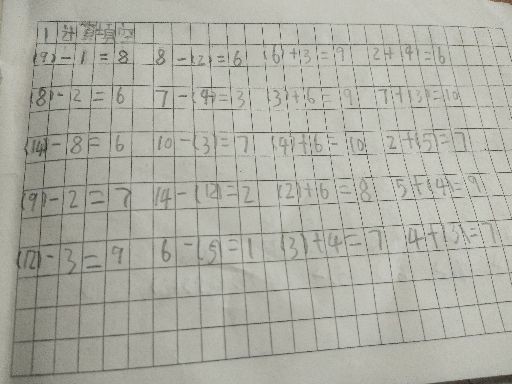 1 计算填空
(9)-1=8 8-(2)=6 (6)+3=9 2+(4)=6
(8)-2=6 7-(4)=3 (3)+6=9 7+(3)=10
(14)-8=6 10-(3)=7 (4)+6=10 2+(5)=7
(9)-2=7 14-(12)=2 (2)+6=8 5+(4)=9
(12)-3=9 6-(5)=1 (3)+4=7 4+(3)=7